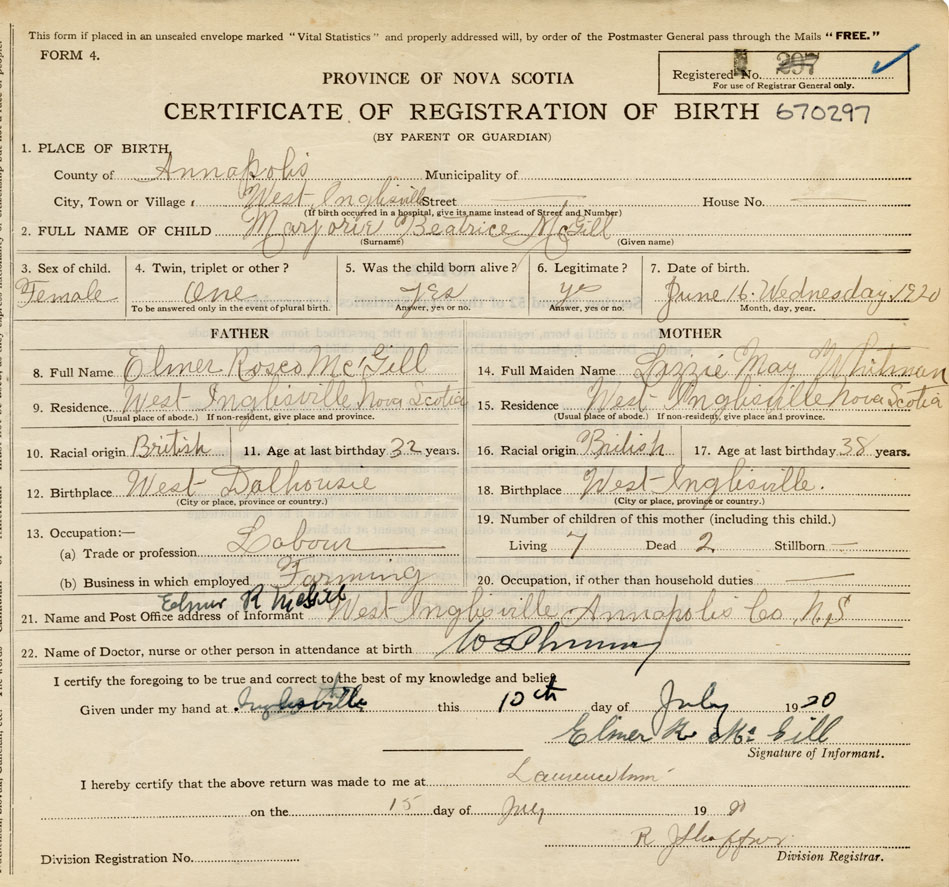 This form if placed in an unsealed envelope marked "Vital Statistics" and properly addressed will, by order of the Postmaster General pass through the Mails "FREE."
FORM 4.
Registered No. 297
For use of Registrar General only.
PROVINCE OF NOVA SCOTIA
CERTIFICATE OF REGISTRATION OF BIRTH 670297
(BY PARENT OR GUARDIAN)
1. PLACE OF BIRTH,
County of Annapolis Municipality of
City, Town or Village West Inglisville Street — House No. —
(If birth occurred in a hospital, give its name instead of Street and Number)
2. FULL NAME OF CHILD Marjorie Beatrice McGill
(Surname) (Given name)
3. Sex of child. 4. Twin, triplet or other? 5. Was the child born alive? 6. Legitimate? 7. Date of birth.
Female One yes yes June 16. Wednesday, 1920
To be answered only in the event of plural birth. Answer, yes or no. Answer, yes or no. Month, day, year.
FATHER MOTHER
8. Full Name Elmer Rosco McGill 14. Full Maiden Name Lizzie May Whitman
9. Residence West Inglisville Nova Scotia 15. Residence West Inglisville Nova Scotia
(Usual place of abode.) If non-resident, give place and province. (Usual place of abode.) If non-resident, give place and province.
10. Racial origin British 11. Age at last birthday 32 years. 16. Racial origin British 17. Age at last birthday 38 years.
12. Birthplace West Dalhousie 18. Birthplace West Inglisville.
(City or place, province or country.) (City or place, province or country.)
13. Occupation:— 19. Number of children of this mother (including this child.)
(a) Trade or profession Labour Living 7 Dead 2 Stillborn —
(b) Business in which employed Farming 20. Occupation, if other than household duties —
Elmer R McGill
21. Name and Post Office address of Informant West Inglisville Annapolis Co, N,S
22. Name of Doctor, nurse or other person in attendance at birth
I certify the foregoing to be true and correct to the best of my knowledge and belief.
Given under my hand at Inglisville this 10th day of July 1920
Elmer R Mc Gill
Signature of Informant.
I hereby certify that the above return was made to me at Lawrencetown
on the 15 day of July 19
R J Shaffner
Division Registration No. Division Registrar.